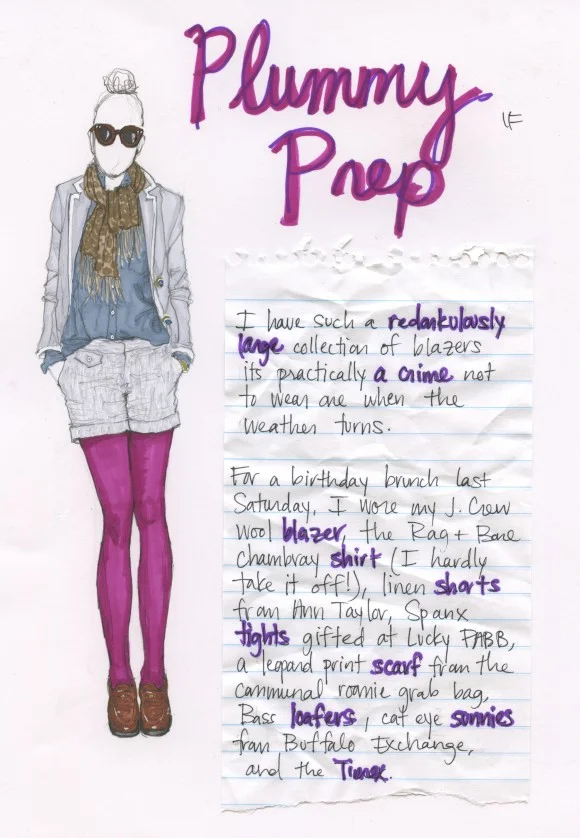 Plummy
Prep
LF
I have such a redonkulously
large collection of blazers
its practically a crime not
to wear one when the
weather turns.
For a birthday brunch last
Saturday, I wore my J. Crew
wool blazer, the Rag + Bone
Chambray shirt (I hardly
take it off!), linen shorts
from Ann Taylor, Spanx
tights gifted at Lucky FABB,
a leopard print scarf from the
communal roomie grab bag,
Bass loafers, cat eye sunnies
from Buffalo Exchange,
and the Timex.